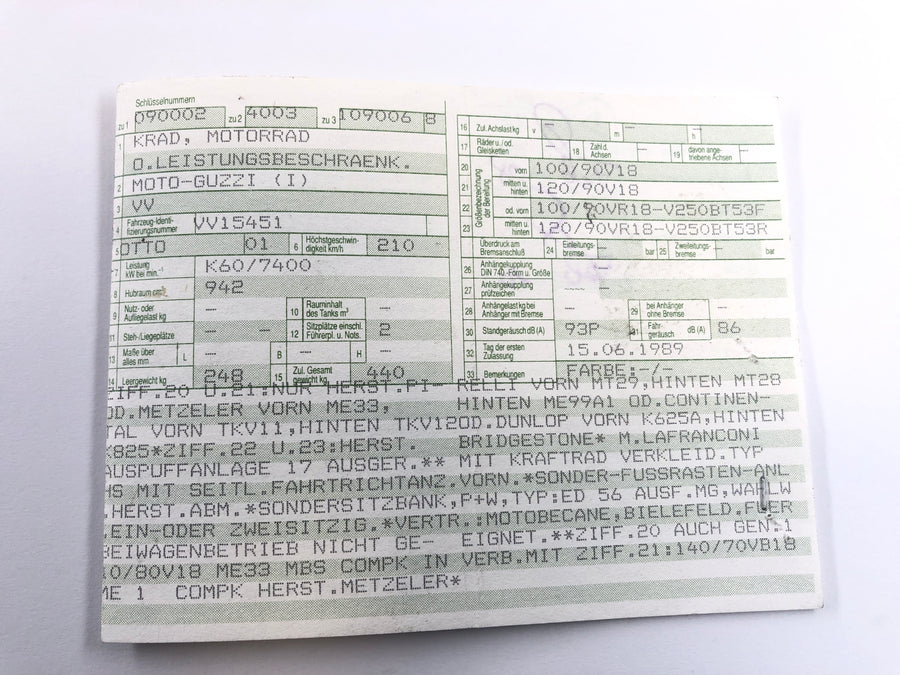 Schlüsselnummern
zu 1 090002 zu 2 4003 zu 3 109006 8
1 KRAD, MOTORRAD
O.LEISTUNGSBESCHRAENK.
2 MOTO-GUZZI (I)
3 VV
4 Fahrzeug-Identifizierungsnummer VV15451
5 OTTO 01 6 Höchstgeschwindigkeit km/h 210
7 Leistung kW bei min.⁻¹ K60/7400
8 Hubraum 942
9 Nutz- oder Aufliegelast kg -- 10 Rauminhalt des Tanks m³ --
11 Steh-/Liegeplätze -- -- 12 Sitzplätze einschl. Führerpl. u. Nots. 2
13 Maße über alles mm L -- B -- H --
14 Leergewicht kg 248 15 Zul. Gesamtgewicht kg 440
16 Zul. Achslast kg v -- m -- h --
17 Räder u./od. Gleisketten -- 18 Zahl d. Achsen -- 19 davon angetriebene Achsen --
Größenbezeichnung der Bereifung
20 vorn 100/90V18
21 mitten u. hinten 120/90V18
22 od. vorn 100/90VR18-V250BT53F
23 mitten u. hinten 120/90VR18-V250BT53R
Überdruck am Bremsanschluß 24 Einleitungsbremse -- bar 25 Zweileitungsbremse -- bar
26 Anhängekupplung DIN 740.-Form u. Größe --
27 Anhängekupplung prüfzeichen --
28 Anhängelast kg bei Anhänger mit Bremse -- 29 bei Anhänger ohne Bremse --
30 Standgeräusch dB (A) 93P 31 Fahrgeräusch dB (A) 86
32 Tag der ersten Zulassung 15.06.1989
33 Bemerkungen FARBE:-/-
ZIFF.20 U.21:NUR HERST.PI- RELLI VORN MT29,HINTEN MT28
OD.METZELER VORN ME33, HINTEN ME99A1 OD.CONTINEN-
TAL VORN TKV11,HINTEN TKV12OD.DUNLOP VORN K625A,HINTEN
K825*ZIFF.22 U.23:HERST. BRIDGESTONE* M.LAFRANCONI
AUSPUFFANLAGE 17 AUSGER.** MIT KRAFTRAD VERKLEID.TYP
HS MIT SEITL.FAHRTRICHTANZ.VORN.*SONDER-FUSSRASTEN-ANL
.HERST.ABM.*SONDERSITZBANK,P+W,TYP:ED 56 AUSF.MG,WAHLW
.EIN-ODER ZWEISITZIG.*VERTR.:MOTOBECANE,BIELEFELD.FUER
BEIWAGENBETRIEB NICHT GE- EIGNET.**ZIFF.20 AUCH GEN:1
10/80V18 ME33 MBS COMPK IN VERB.MIT ZIFF.21:140/70VB18
ME 1 COMPK HERST.METZELER*